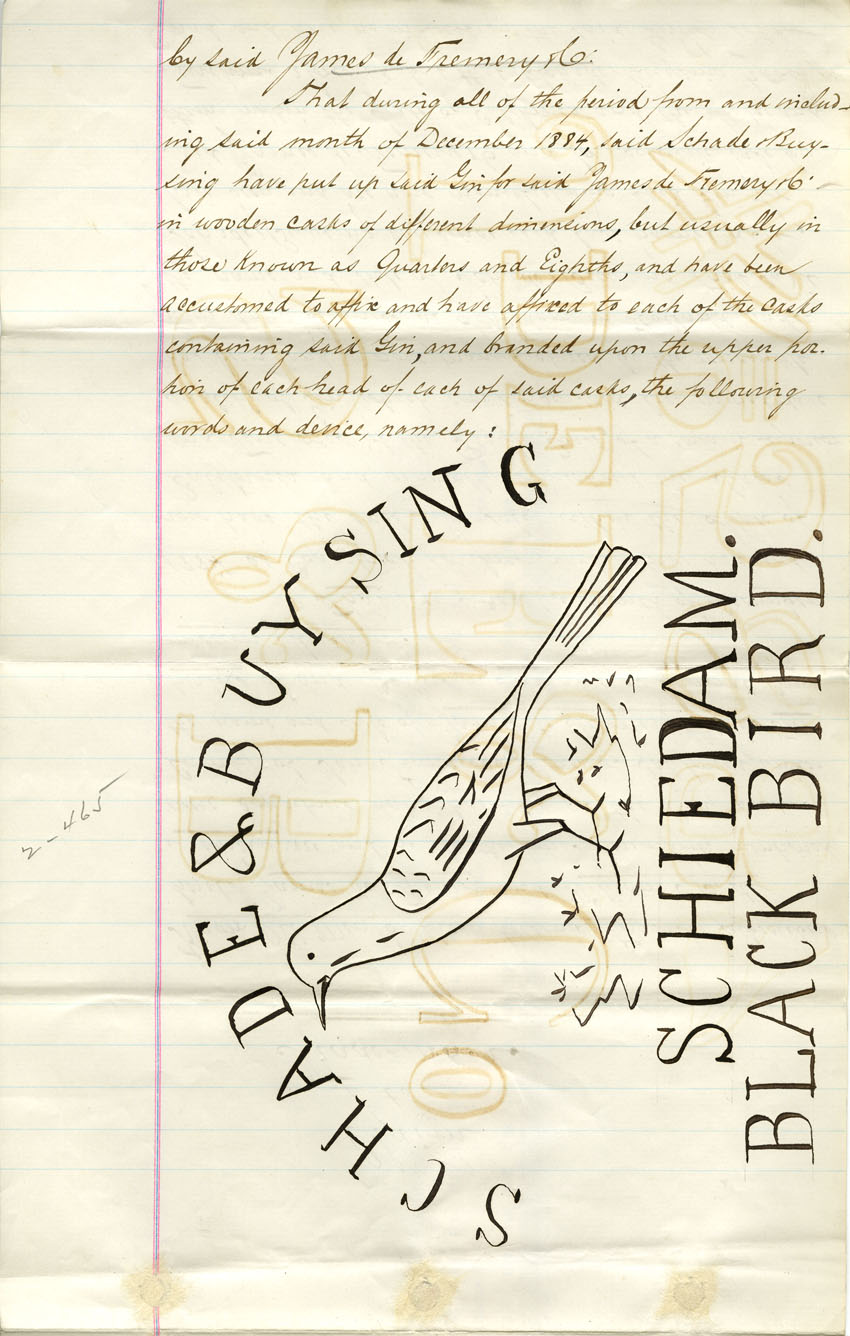 by said James de Fremery & Co.
That during all of the period from and includ-
ing said month of December 1884, said Schade & Buy-
sing have put up said Gin for said James de Fremery & Co.
in wooden casks of different dimensions, but usually in
those known as Quarters and Eighths, and have been
accustomed to affix and have affixed to each of the casks
containing said Gin, and branded upon the upper por-
tion of each head of each of said casks, the following
words and device, namely:
SCHADE & BUYSING
SCHIEDAM.
BLACK BIRD.
2-465